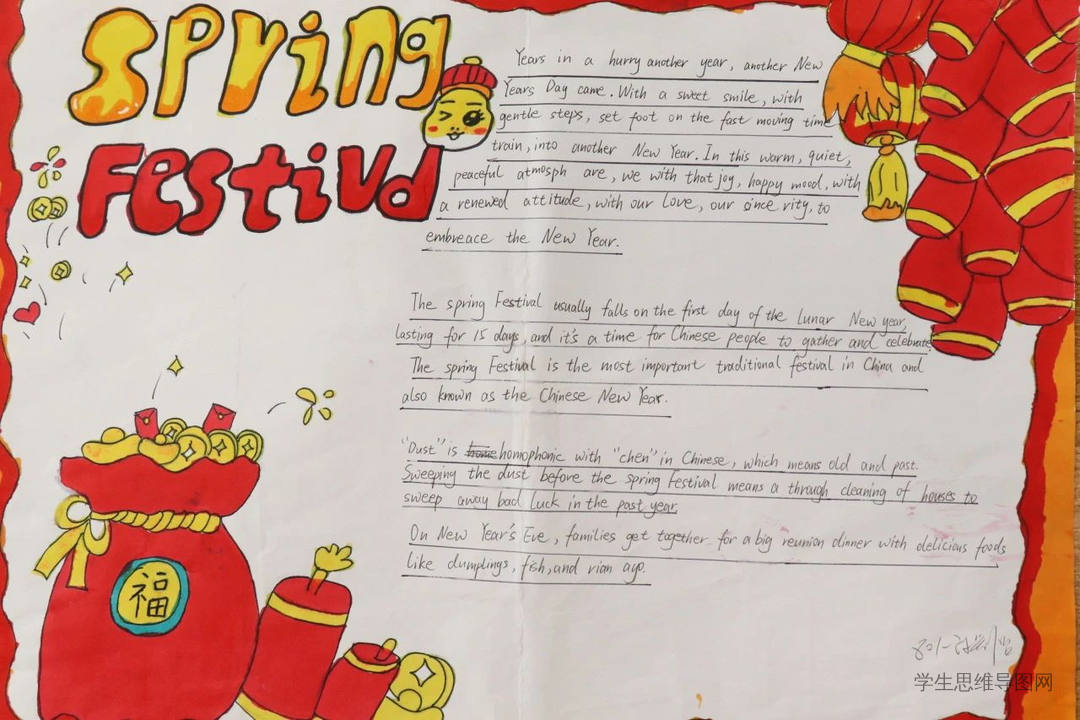 Spring
Festival
Years in a hurry another year, another New
Years Day came. With a sweet smile, with
gentle steps, set foot on the fast moving time
train, into another New Year. In this warm, quiet,
peaceful atmosph are, we with that joy, happy mood, with
a renewed attitude, with our love, our since rity, to
embreace the New Year.
The spring Festival usually falls on the first day of the lunar New year,
lasting for 15 days, and it's a time for Chinese people to gather and celebrate.
The spring Festival is the most important traditional festival in China and
also known as the Chinese New Year.
"Dust" is homophonic with "chen" in Chinese, which means old and past.
Sweeping the dust before the spring Festival means a through cleaning of houses to
sweep away bad luck in the past year.
On New Year's Eve, families get together for a big reunion dinner with delicious foods
like dumplings, fish, and nian ago.
福
学生思维导图网